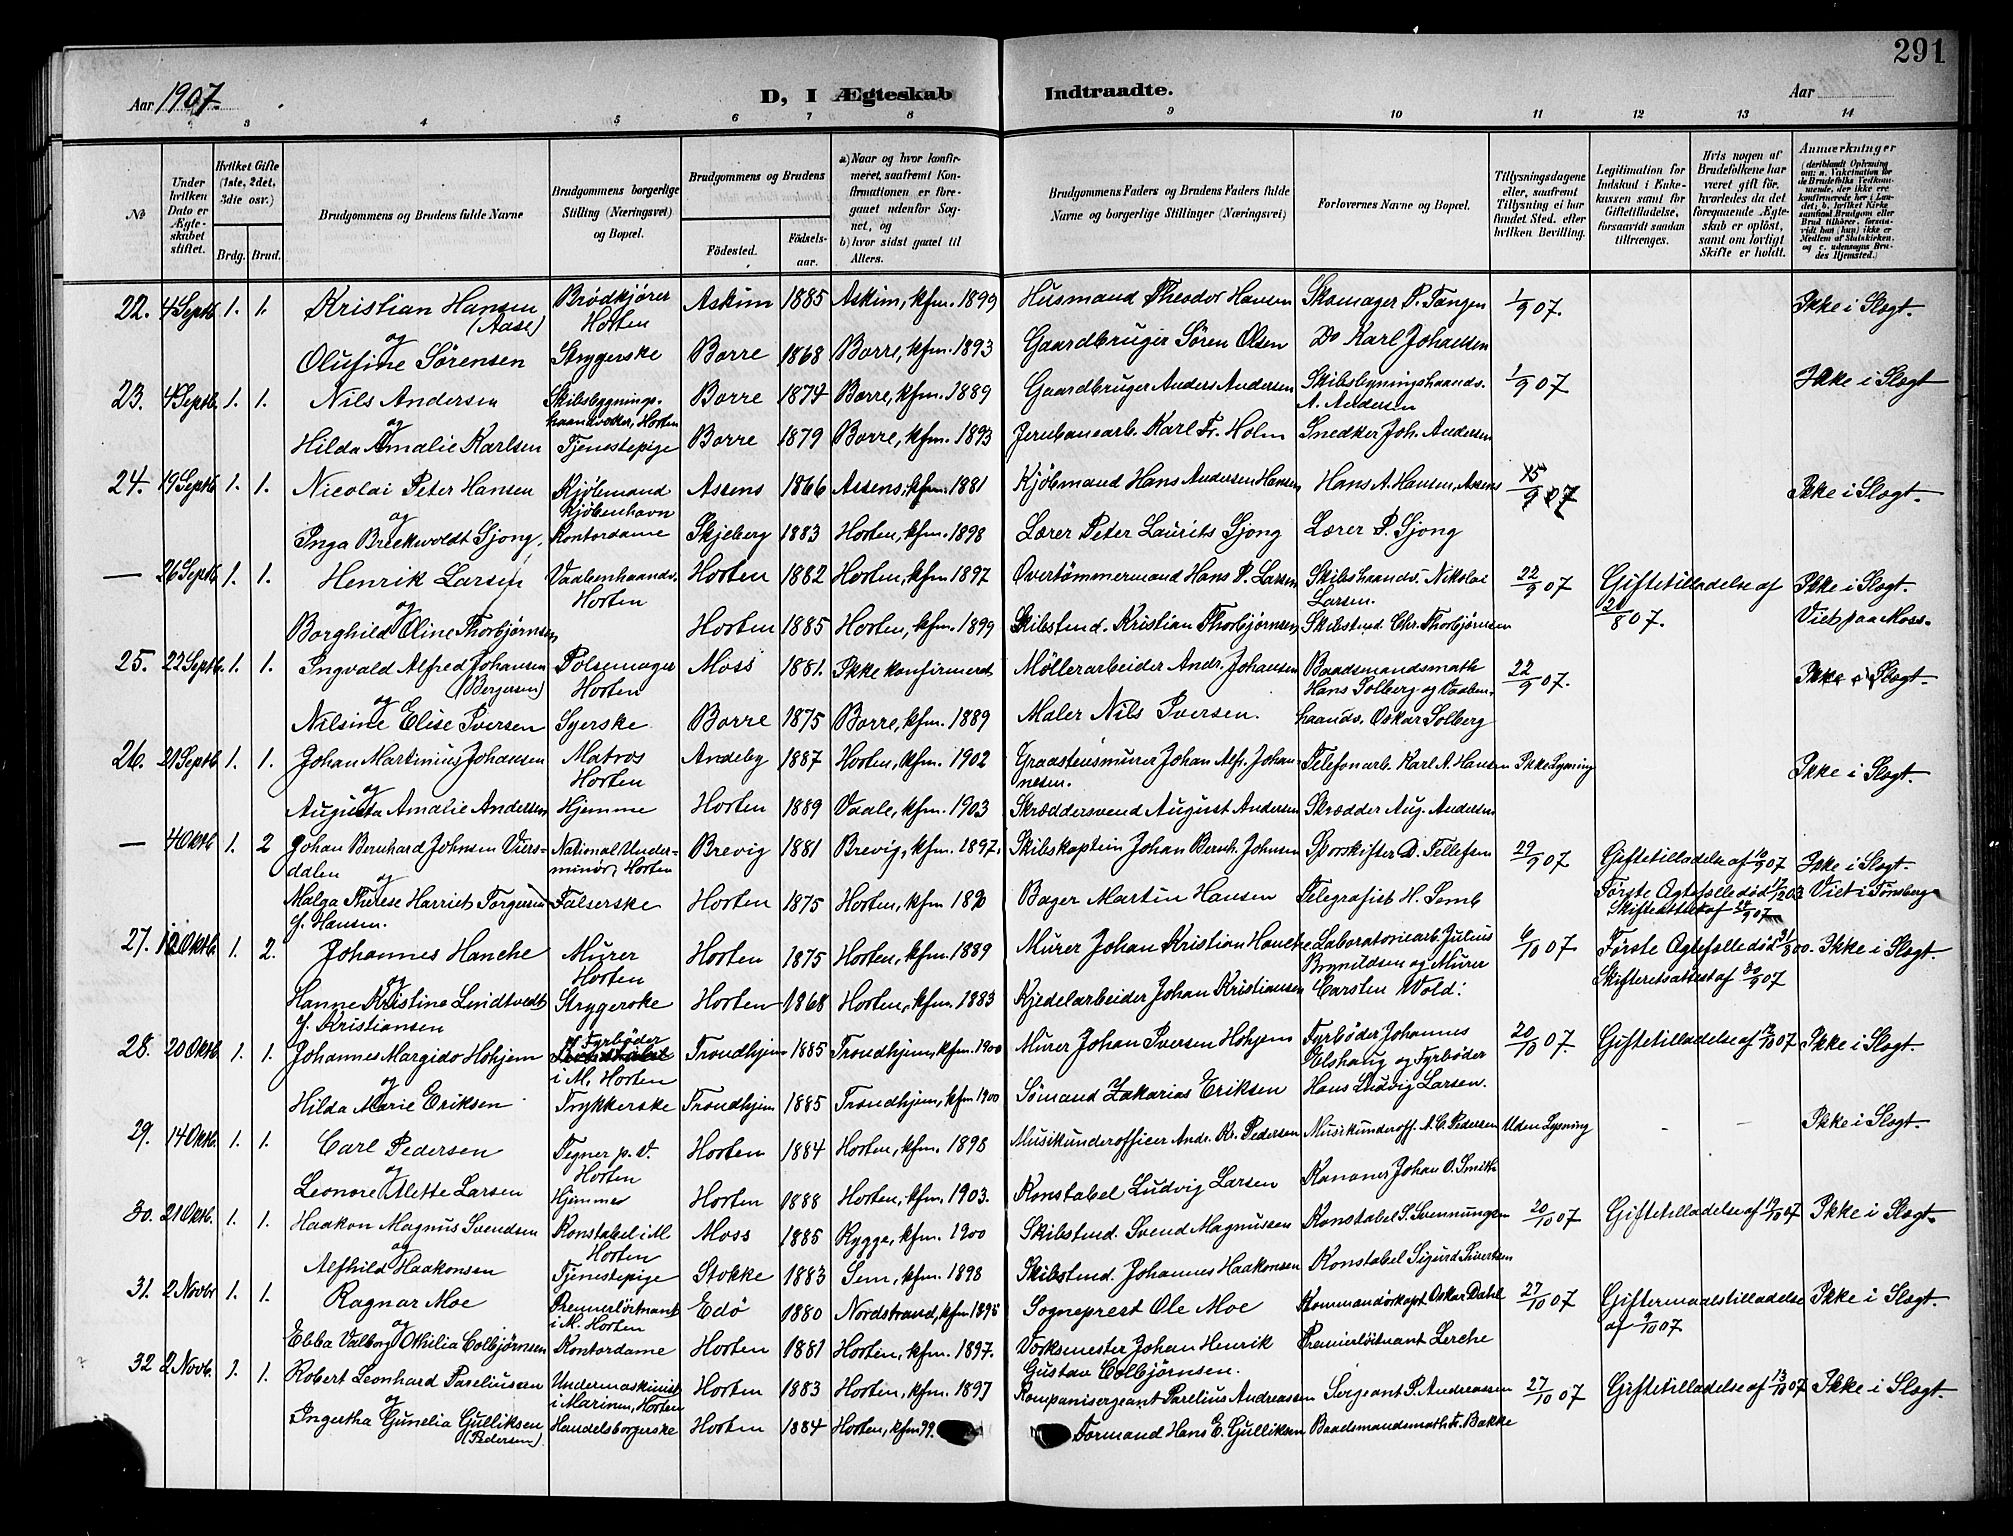 291
Aar 1907.
D, I Ægteskab Indtraadte.
Aar
3 4 5 6 7 8 9 10 11 12 13 14
No
Under hvilken Dato er Ægteskabet stiftet.
Hvilket Gifte (1ste, 2det, 3die osv.)
Brdg. Brud.
Brudgommens og Brudens fulde Navne
Brudgommens borgerlige Stilling (Næringsvei) og Bopæl.
Brudgommens og Brudens
Fødested. Fødselsaar.
a) Naar og hvor konfirmeret, saafremt Konfirmationen er foregaaet udenfor Sognet, og b) hvor sidst gaaet til Alters.
Brudgommens Faders og Brudens Faders fulde Navne og borgerlige Stillinger (Næringsvei)
Forlovernes Navne og Bopæl.
Tillysningsdagene eller, saafremt Tillysning ei har fundet Sted, efter hvilken Bevilling.
Legitimation for Indskud i Enkekassen samt for Giftetilladelse, forsaavidt saadan tiltrænges.
Hvis nogen af Brudefolkene har været gift før, hvorledes da det foregaaende Ægteskab er opløst, samt om lovligt Skifte er holdt.
Anmærkninger
22. 4 Septb. 1. 1. Kristian Hansen (Aase) Brødkjører Horten Askim 1885 Askim, kfm. 1899 Husmand Theodor Hansen Skomager P. Tangen 1/9 07. Ikke i Slægt.
og
Olufine Sørensen Strygerske Borre 1868 Borre, kfm. 1893 Gaardbruger Søren Olsen Do Karl Johansen
23. 4 Septb. 1. 1. Nils Andersen Skibsbygningshaandverker, Horten Borre 1874 Borre, kfm. 1889 Gaardbruger Anders Andersen Skibsbygningshaandv. A. Andersen 1/9 07 Ikke i Slægt
og
Hilda Amalie Karlsen Tjenestepige Borre 1879 Borre, kfm. 1893 Jernbanearb. Karl Fr. Holm Snedker Joh. Andersen
24. 19 Septb. 1. 1. Nicolai Peter Hansen Kjøbmand Kjøbenhavn Assens 1866 Assens, kfm. 1881 Kjøbmand Hans Andersen Hansen Hans A. Hansen, Assens 15/9 07 Ikke i Slægt.
og
Inga Breekwoldt Sjong. Kontordame Skjeberg 1883 Horten, kfm. 1898 Lærer Peter Laurits Sjong Lærer P. Sjong
— 26 Septb. 1. 1. Henrik Larsen Vaabenhaandv. Horten Horten 1882 Horten, kfm. 1897 Overtømmermand Hans P. Larsen Skibshaandv. Nikolai Larsen. 22/9 07 Giftetilladelse af 20/8 07. Ikke i Slægt. Viet paa Moss.
og
Borghild Oline Thorbjørnsen Horten 1885 Horten, kfm. 1899 Skibstmd. Kristian Thorbjørnsen, Skibstmd. Chr. Thorbjørnsen
25. 22 Septb. 1. 1. Ingvald Alfred Johansen (Bergersen) Pølsemager Horten Moss 1881. Ikke konfirmeret Møllerarbeider Andr. Johansen Baadsmandsmath Hans Solberg og Vaabenhaandv. Oskar Solberg 22/9 07. Ikke i Slægt.
og
Nilsine Elise Iversen Syerske Borre 1875 Borre, kfm. 1889 Maler Nils Iversen.
26. 21 Septb. 1. 1. Johan Martinius Johansen Matros Horten Andeby 1887 Horten, kfm. 1902 Graastensmurer Johan Alfr. Johannesen. Telefonarb. Karl A. Hansen Ikke Lysning Ikke i Slægt.
og
Augusta Amalie Andersen Hjemme Horten 1889 Vaale, kfm. 1903 Skræddersvend August Andersen Skrædder Aug. Andersen
— 4 Oktb 1. 2 Johan Bernhard Johnsen Viersdalen National Underminør, Horten Brevig 1881 Brevig, kfm. 1897. Skibskaptein Johan Bernh. Johnsen Sporskifter D. Tellefsen 29/9 07 Giftetilladelse af 16/9 07 Ikke i Slægt.
og
Malga Therese Harriet Torgersen f. Hansen. Falserske Horten 1875 Horten, kfm 1890 Bager Martin Hansen Telegrafist H. Semb Første Ægtefælle død 1/12 03 Skifteattest af 24/9 07 Viet i Tønsberg
27. 12 Oktb. 1. 2. Johannes Hanche Murer Horten Horten 1875 Horten, kfm. 1889 Murer Johan Kristian Hanche Laboratoriearb. Julius Brynildsen og Murer Carsten Wold. 6/10 07 Første Ægtefælle død 31/8 00. Skifteretsattest af 30/9 07 Ikke i Slægt.
og
Hanne Kristine Lindtvedt f. Kristiansen Strygerske Horten 1868 Horten, kfm. 1883 Kjedelarbeider Johan Kristiansen
28. 20 Oktb. 1. 1. Johannes Margido Hohjem Fyrbøder i M. Horten Trondhjem 1885 Trondhjem, kfm. 1900 Murer Johan Iversen Hohjem Fyrbøder Johannes Elshaug og Fyrbøder Hans Ludvig Larsen. 20/10 07. Giftetilladelse af 12/10 07 Ikke i Slægt.
og
Hilda Marie Eriksen Trykkerske Trondhjem 1885 Trondhjem, kfm 1900 Sømand Zakarias Eriksen
29. 14 Oktb. 1. 1. Carl Pedersen Tegner p. V. Horten Horten 1884 Horten, kfm. 1898 Musikunderofficer Andr. Kr. Pedersen Musikunderoff. A. C. Pedersen Uden Lysning - - Ikke i Slægt.
og
Leonore Alette Larsen Hjemme Horten 1888 Horten, kfm. 1903. Konstabel Ludvig Larsen Kanoner Johan O. Smith
30. 21 Oktb. 1. 1. Haakon Magnus Svendsen Konstabel i M. Horten Moss 1885 Rygge, kfm. 1900 Skibstmd. Svend Magnussen Konstabel S. Svennungsen 20/10 07 Giftetilladelse af 12/10 07 Ikke i Slægt.
og
Alfhild Haakonsen Tjenestepige Stokke 1883 Sem, kfm. 1898 Skibstmd. Johannes Haakonsen Konstabel Sigurd Sivertsen
31. 2 Novbr 1. 1. Ragnar Moe Premierløitnant i M. Horten Edø 1880 Nordstrand, kfm. 1895 Sogneprest Ole Moe Kommandørkapt Oskar Dahl 27/10 07 Giftermaalstilladelse af 9/10 07 Ikke i Slægt.
og
Ebba Valborg Othilia Colbjørnsen Kontordame Horten 1881 Horten, kfm. 1897. Værksmester Johan Henrik Gustav Colbjørnsen. Premierløitnant Lerche
32 2 Novb. 1. 1. Robert Leonhard Pareliussen Undermaskinist i Marinen, Horten Horten 1883 Horten, kfm. 1897 Kompanisergeant Parelius Andreassen Sergeant P. Andreassen 27/10 07 Giftetilladelse af 13/10 07 Ikke i Slægt.
og
Ingertha Gunelia Gulliksen (Pedersen). Handelsborgerske Horten 1884 Horten, kfm 99. Formand Hans E. Gulliksen Baadsmandsmath Fr. Bakke